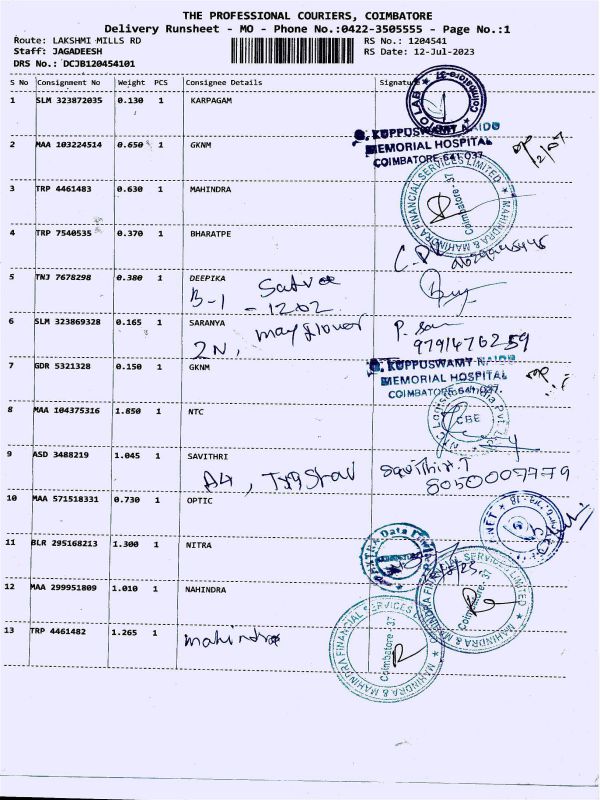 THE PROFESSIONAL COURIERS, COIMBATORE
Delivery Runsheet - MO - Phone No.:0422-3505555 - Page No.:1
Route: LAKSHMI MILLS RD RS No.: 1204541
Staff: JAGADEESH RS Date: 12-Jul-2023
DRS No.: DCJB120454101
S No Consignment No Weight PCS Consignee Details Signature
1 SLM 323872035 0.130 1 KARPAGAM
2 MAA 103224514 0.650 1 GKNM
KUPPUSWAMY NAIDU
MEMORIAL HOSPITAL
COIMBATORE-641 037
3 TRP 4461483 0.630 1 MAHINDRA
MAHINDRA & MAHINDRA FINANCIAL SERVICES LIMITED
Coimbatore - 37
4 TRP 7540535 0.370 1 BHARATPE
5 TNJ 7678298 0.380 1 DEEPIKA
B-1 - 1202
6 SLM 323869328 0.165 1 SARANYA
2N, mayflower
9791476259
7 GDR 5321328 0.150 1 GKNM
KUPPUSWAMY NAIDU
MEMORIAL HOSPITAL
COIMBATORE-641 037
8 MAA 104375316 1.850 1 NTC
CBE
9 ASD 3488219 1.045 1 SAVITHRI
A4, Savithiri.T
8050007779
10 MAA 571518331 0.730 1 OPTIC
11 BLR 295168213 1.300 1 NITRA
12 MAA 299951809 1.010 1 NAHINDRA
13 TRP 4461482 1.265 1 mahindra
MAHINDRA & MAHINDRA FINANCIAL SERVICES
Coimbatore - 37